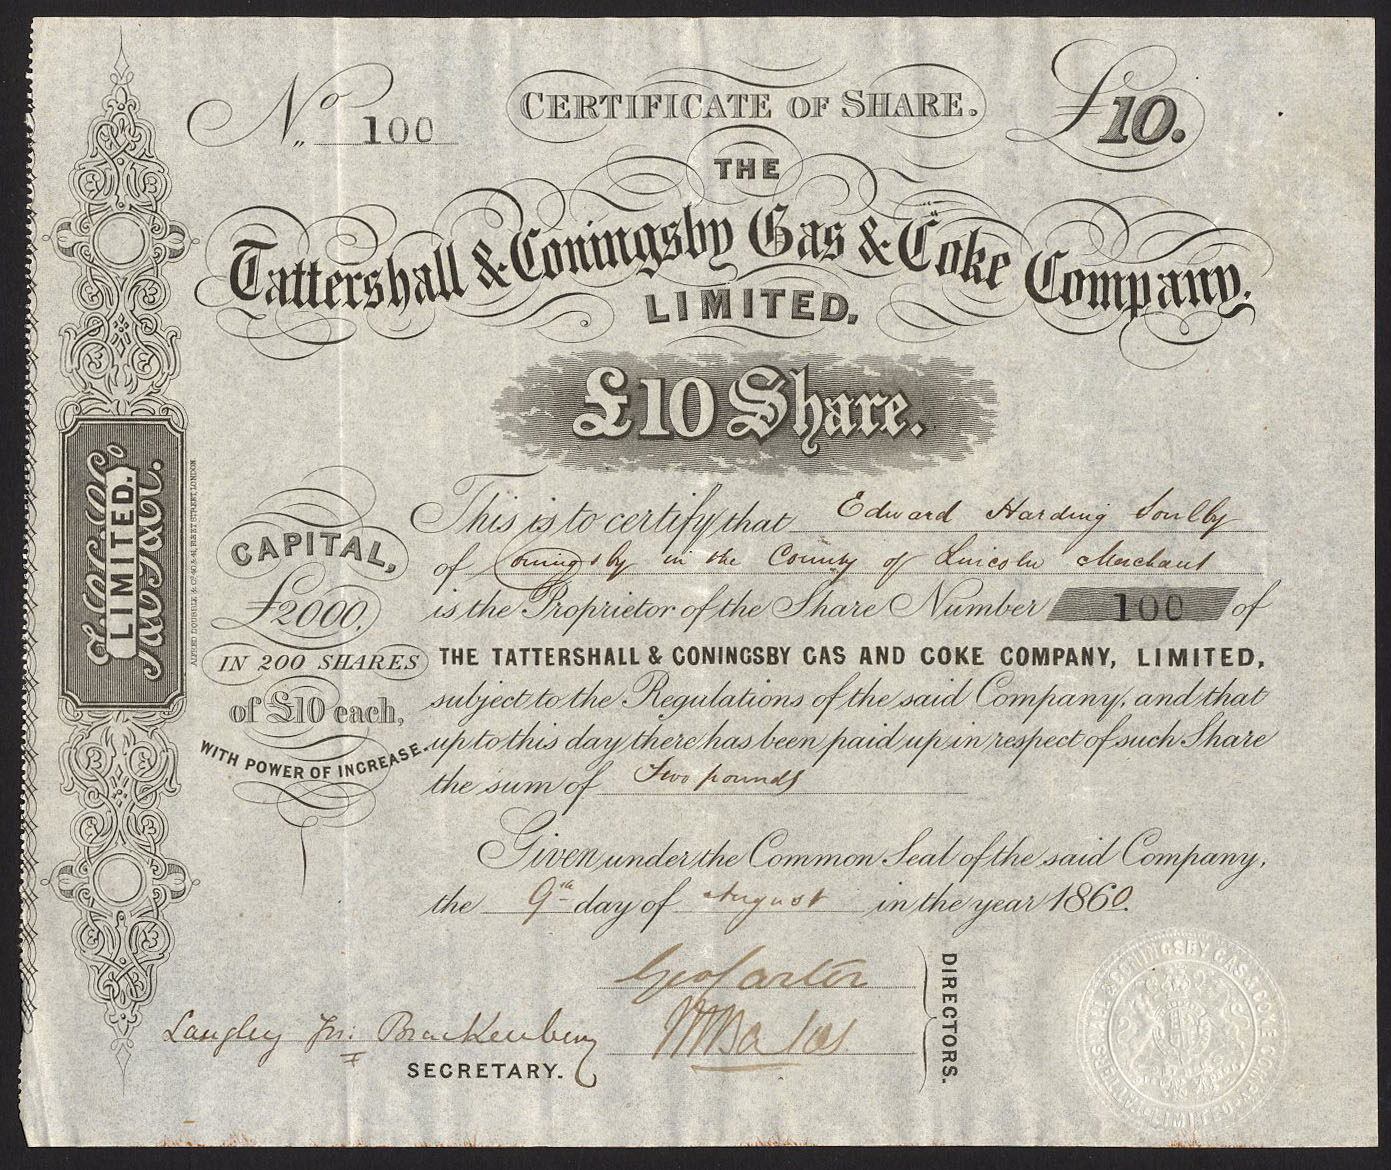 No 100
CERTIFICATE OF SHARE.
£10.
THE
Tattershall & Coningsby Gas & Coke Company,
LIMITED,
£10 Share.
LIMITED.
ALFRED DOUBBLE & Co 40 & 41, FLEET STREET, LONDON
CAPITAL,
£2000,
IN 200 SHARES
of £10 each,
WITH POWER OF INCREASE.
This is to certify that Edward Harding Soulby
of Coningsby in the County of Lincoln Merchant
is the Proprietor of the Share Number 100 of
THE TATTERSHALL & CONINGSBY GAS AND COKE COMPANY, LIMITED,
subject to the Regulations of the said Company, and that
up to this day there has been paid up in respect of such Share
the sum of Two pounds
Given under the Common Seal of the said Company,
the 9th day of August in the year 1860.
Geo Carter
Langley Jn: Brackenbury
SECRETARY.
DIRECTORS.
TATTERSHALL & CONINGSBY GAS & COKE COMPY LIMITED